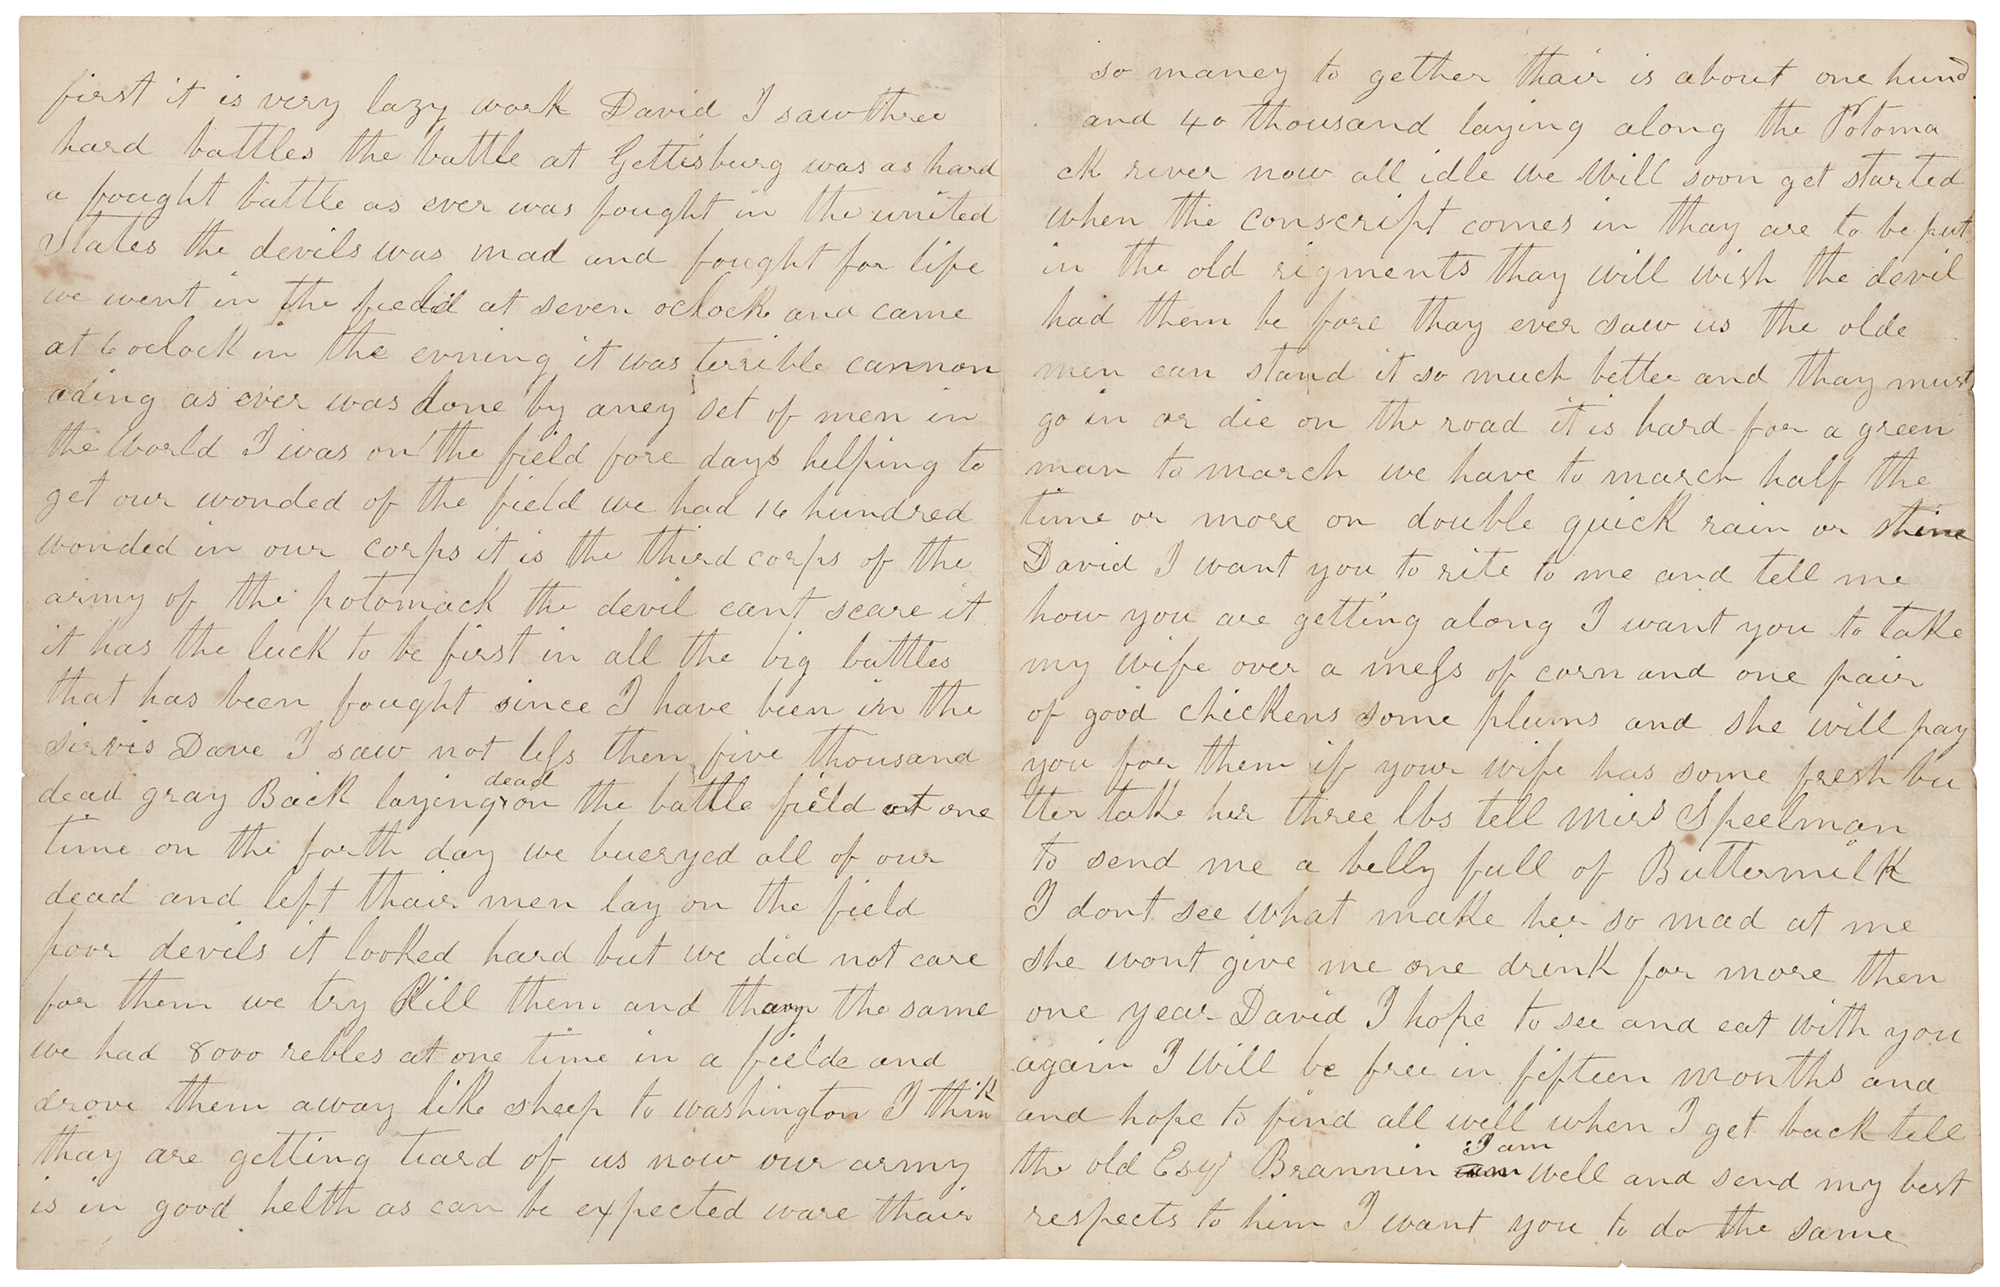 first it is very lazy work David I saw three
hard battles the battle at Gettisburg was as hard
a fought battle as ever was fought in the united
States the devils was mad and fought for life
we went in the field at seven oclock and came
at 6 oclock in the evning it was terrible cannon
ading as ever was done by aney set of men in
the world I was on the field fore days helping to
get our wonded of the field we had 16 hundred
wonded in our corps it is the third corps of the
army of the potomack the devil cant scare it
it has the luck to be first in all the big battles
that has been fought since I have been in the
sirvis Dave I saw not less then five thousand
dead gray Back laying dead on the battle field at one
time on the forth day we bueryed all of our
dead and left thair men lay on the field
poor devils it looked hard but we did not care
for them we try Kill them and thay the same
we had 8000 rebles at one time in a fielde and
drove them away like sheep to washington I think
thay are getting tiard of us now our army
is in good helth as can be expected ware thair
so maney to gether thair is about one hund
and 40 thousand laying along the Potoma
ck river now all idle we will soon get started
when the conscript comes in thay are to be put
in the old rigments thay will wish the devil
had them be fore thay ever saw us the olde
men can stand it so much better and thay must
go in or die on the road it is hard for a green
man to march we have to march half the
time or more on double quick rain or shine
David I want you to rite to me and tell me
how you are getting along I want you to take
my wife over a mess of corn and one pair
of good chickens some plums and she will pay
you for them if your wife has some fresh bu
tter take her three lbs tell Mirs Speelman
to send me a belly full of Buttermilk
I dont see what make her so mad at me
she wont give me one drink for more then
one year David I hope to see and eat with you
again I will be free in fifteen months and
and hope to find all well when I get back tell
the old Esqr Brannin I am well and send my best
respects to him I want you to do the same